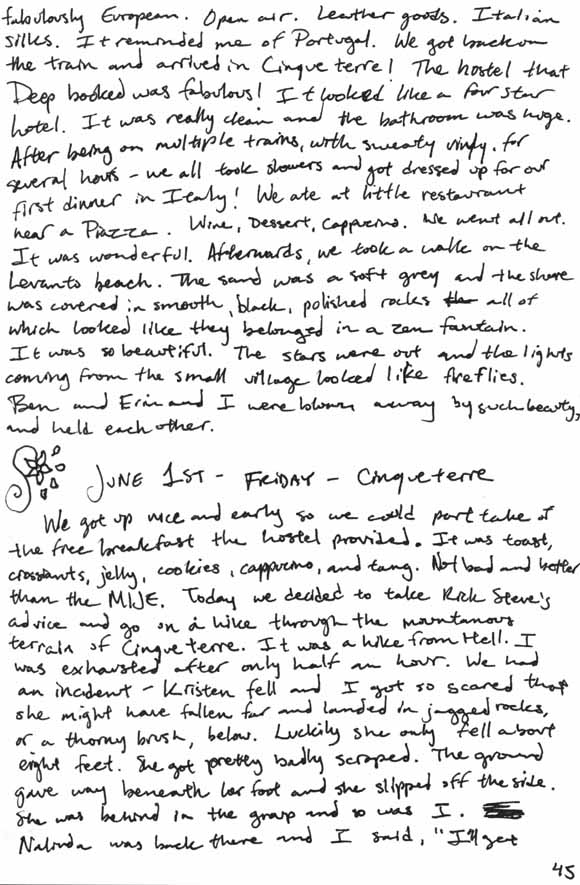 fabulously European. Open air. Leather goods. Italian
silks. It reminded me of Portugal. We got back on
the train and arrived in Cinque terre! The hostel that
Deep booked was fabulous! It looked like a four star
hotel. It was really clean and the bathroom was huge.
After being on multiple trains, with sweaty vinyl, for
several hours - we all took showers and got dressed up for our
first dinner in Italy! We ate at little restaurant
near a Piazza. Wine, Dessert, Cappucino. We went all out.
It was wonderful. Afterwards, we took a walk on the
Levanto beach. The sand was a soft grey and the shore
was covered in smooth, black, polished rocks all of
which looked like they belonged in a zen fountain.
It was so beautiful. The stars were out and the lights
coming from the small village looked like fireflies.
Ben and Erin and I were blown away by such beauty,
and held each other.
JUNE 1ST - FRIDAY - Cinque terre
We got up nice and early so we could part take of
the free breakfast the hostel provided. It was toast,
crossiants, jelly, cookies, cappucino, and tang. Not bad and better
than the MIJE. Today we decided to take Rick Steve's
advice and go on a hike through the mountanous
terrain of Cinque terre. It was a hike from Hell. I
was exhausted after only half an hour. We had
an incident - Kristen fell and I got so scared that
she might have fallen far and landed in jagged rocks,
or a thorny brush, below. Luckily she only fell about
eight feet. She got pretty badly scraped. The ground
gave way beneath her foot and she slipped off the side.
She was behind in the group and so was I.
Nalinda was back there and I said, "I'll get
45